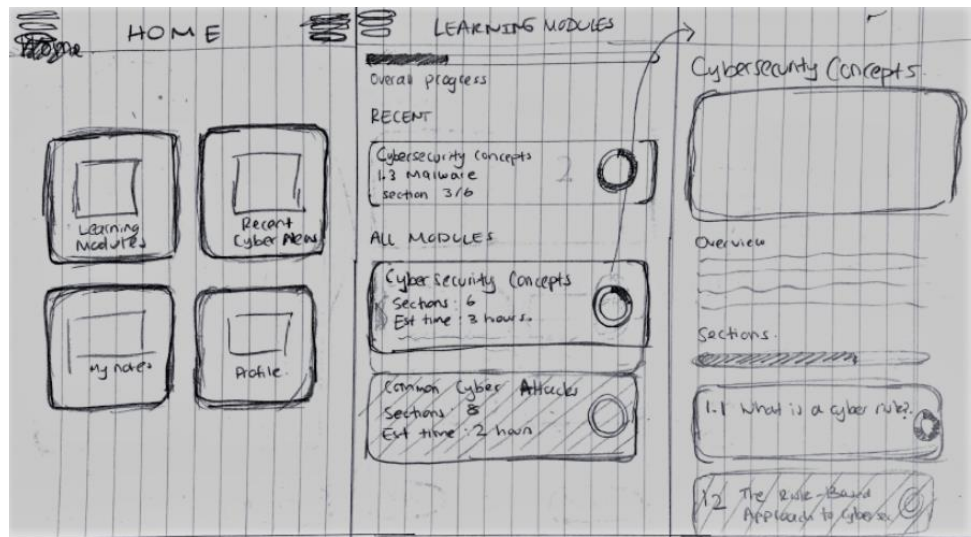 HOME
Home
Learning
Modules
Recent
Cyber News
My notes
Profile.
LEARNING MODULES
Overall progress
RECENT
Cybersecurity Concepts
1.3 Malware
section 3/6
2
ALL MODULES
Cybersecurity Concepts
Sections : 6
Est time : 3 hours.
Common Cyber Attacks
Sections : 8
Est time : 2 hour
Cybersecurity Concepts.
Overview
Sections.
1.1 What is a cyber rule?
1.2 The Rule-Based
Approach to Cybersec